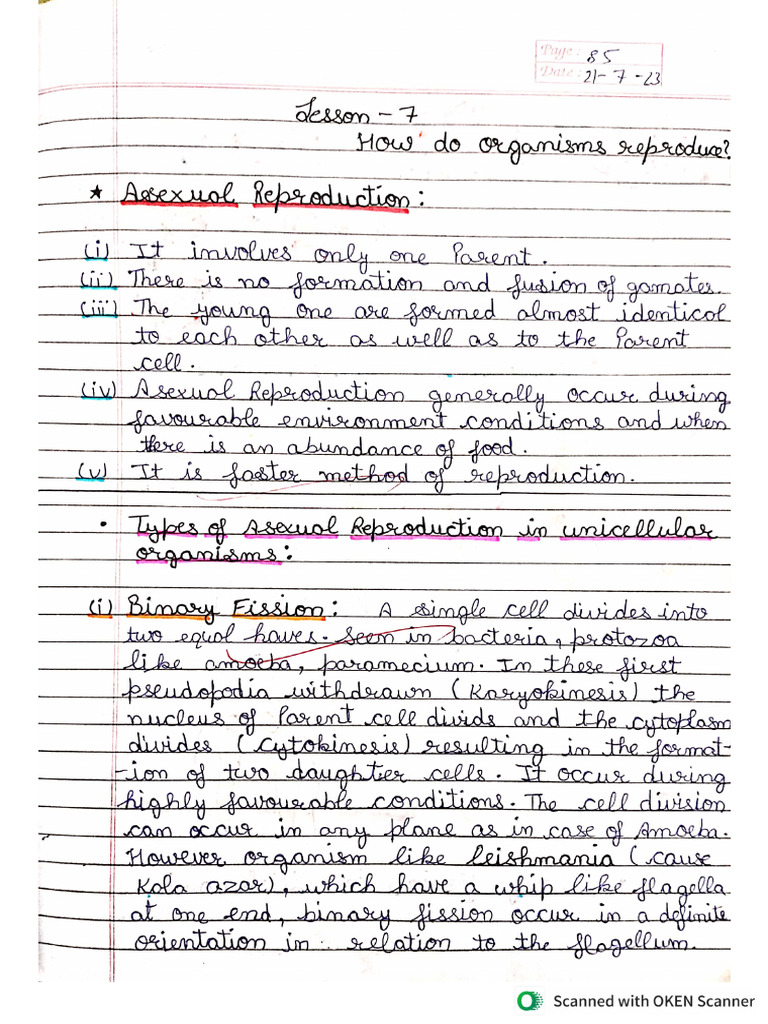 Page: 85
Date: 21-7-23
Lesson - 7
How do organisms reproduce?
★ Asexual Reproduction:
(i) It involves only one Parent.
(ii) There is no formation and fusion of gamates.
(iii) The young one are formed almost identical
to each other as well as to the Parent
cell.
(iv) Asexual Reproduction generally occur during
favourable environment conditions and when
there is an abundance of food.
(v) It is faster method of reproduction.
• Types of Asexual Reproduction in unicellular
organisms:
(i) Binary Fission: A single cell divides into
two equal haves. Seen in bacteria, protozoa
like amoeba, paramecium. In these first
pseudopodia withdrawn (Karyokinesis) the
nucleus of Parent cell divids and the cytoplasm
divides (cytokinesis) resulting in the format-
-ion of two daughter cells. It occur during
highly favourable conditions. The cell division
can occur in any plane as in case of Amoeba.
However organism like leishmania (cause
Kala azar), which have a whip like flagella
at one end, binary fission occur in a definite
orientation in relation to the flagellum.
Scanned with OKEN Scanner